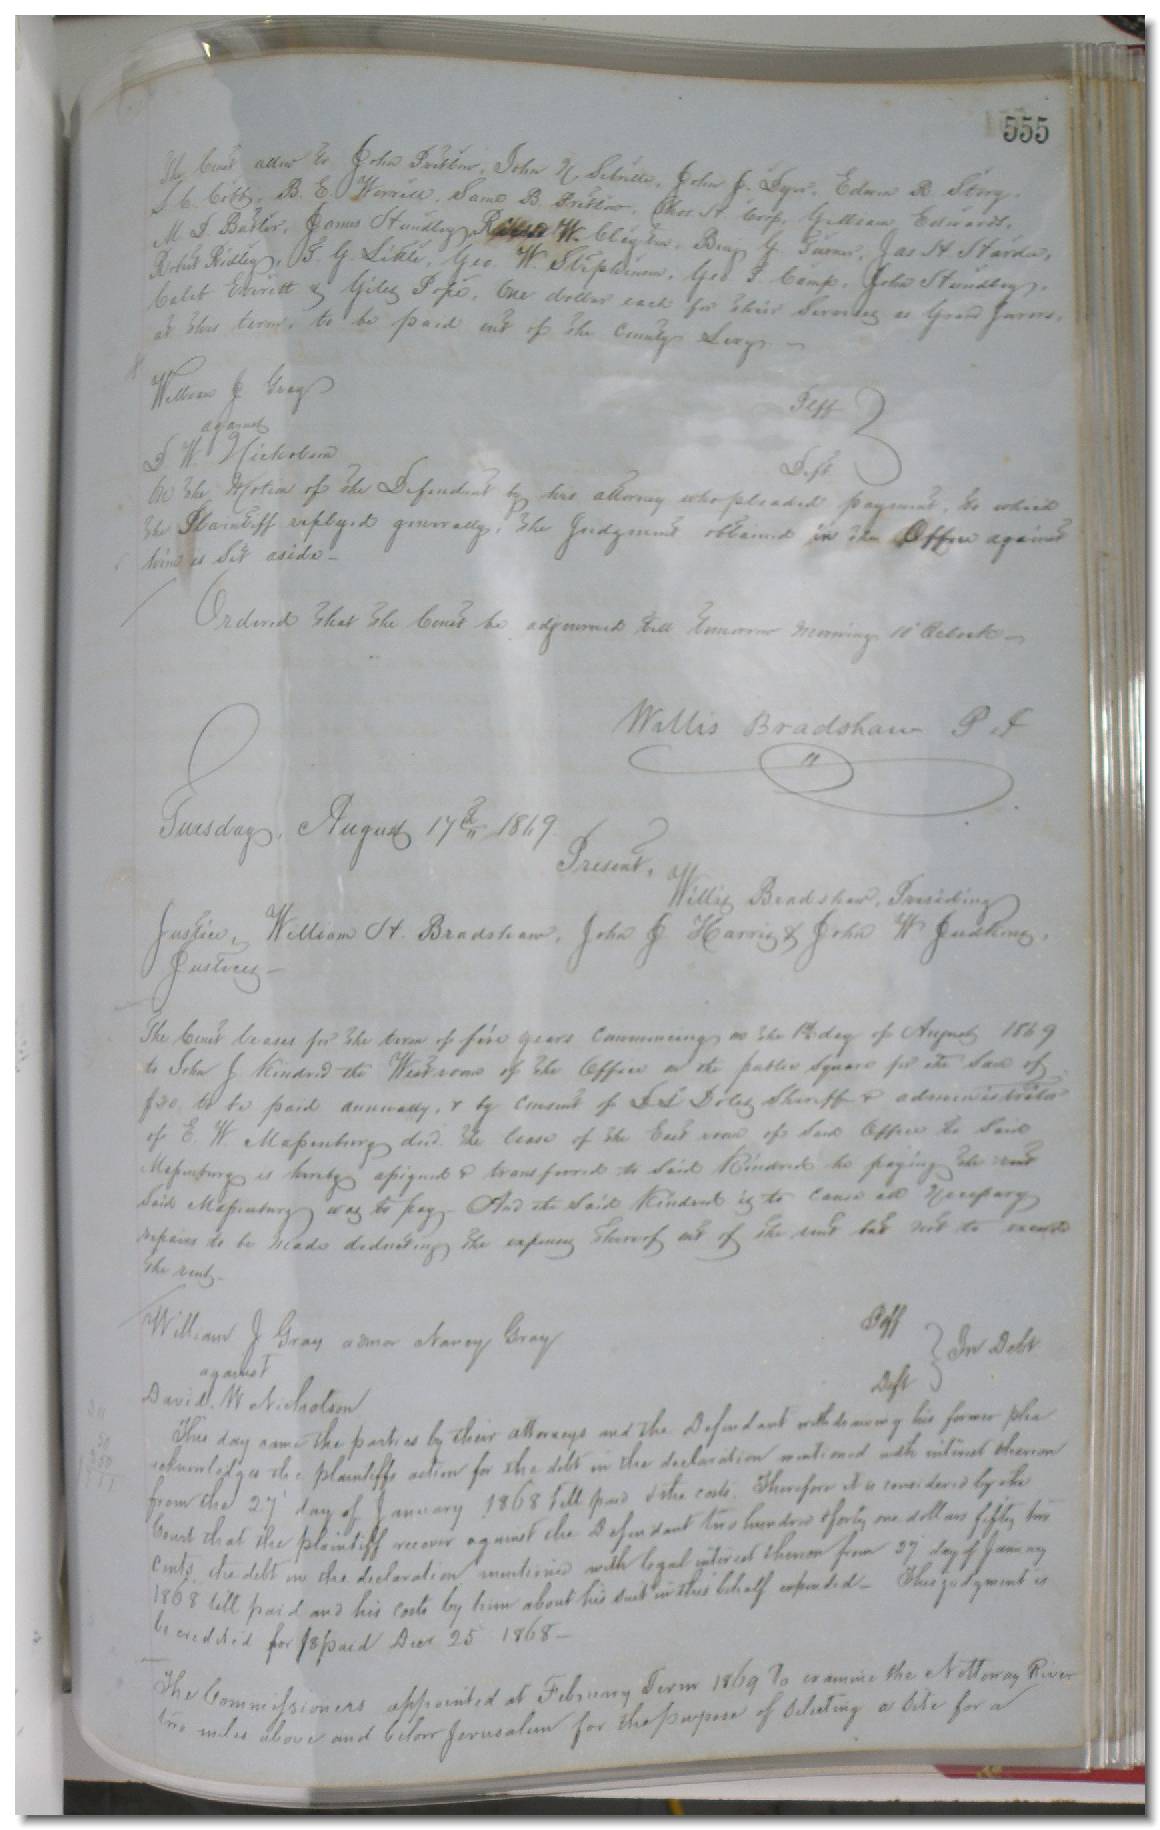 555
The Court allow to John Pretlow, John N. Sebrelle, John J. Dyer, Edwin R Story,
B. E. Worrell, Saml B. Pretlow, Thos. H. Crop, William Edwards,
M. D. Butler, James Hundley, W. Clayton, Benj G. Turner, Jas H.
Robert Ridley, G. Little, Geo. W. Stephenson, Geo P. Camp, John Hundley,
Caleb Everett & Giles Pope, One dollar each for their Services as Grand Jurors,
at this term, to be paid out of the County Levy.
William J Gray Plff
against
D W. Nicholson Deft
On the Motion of the Defendant by his attorney who pleaded payment, to which
the Plaintiff replyed generally, the Judgment obtained in the Office against
him is Set aside—
Ordered that the Court be adjourned till tomorrow morning 10 OClock—
Willis Bradshaw P J
Tuesday, August 17th 1869
Present,
Willis Bradshaw, Presiding
Justice, William H. Bradshaw, John J Harris & John W Judkins,
Justices—
The Court leases for the term of five years commencing on the 1st day of August 1869
to John J. Kindred the West room of the Office on the public Square for the Sum of
$20, to be paid annually, & by consent of L L Doles Sheriff & administrator
of E. W. Massenburg decd. the lease of the East room of Said Office to Said
Massenburg is hereby assigned & transferred to Said Kindred he paying the rent
Said Massenburg was to pay— And the Said Kindred is to cause all Necessary
repairs to be made deducting the expenses thereof out of the rent but not to exceed
the rent—
William J Gray admor Nancy Gray Plff
In Debt
against
David. W Nicholson Deft
This day came the parties by their attorneys and the Defendant withdrawing his former plea
acknowledges the plaintiffs action for the debt in the declaration mentioned with interest thereon
from the 27 day of January 1868 till paid & the costs. Therefore it is considered by the
Court that the plaintiff recover against the Defendant two hundred & forty one dollars fifty two
cents, the debt in the declaration mentioned with legal interest thereon from 27 day of January
1868 till paid and his costs by him about his suit in this behalf expended— This judgment is
be credited for $8 paid Decr 25 1868—
The Commissioners appointed at February Term 1869 To examine the Nottoway River
two miles above and below Jerusalem for the purpose of selecting a site for a